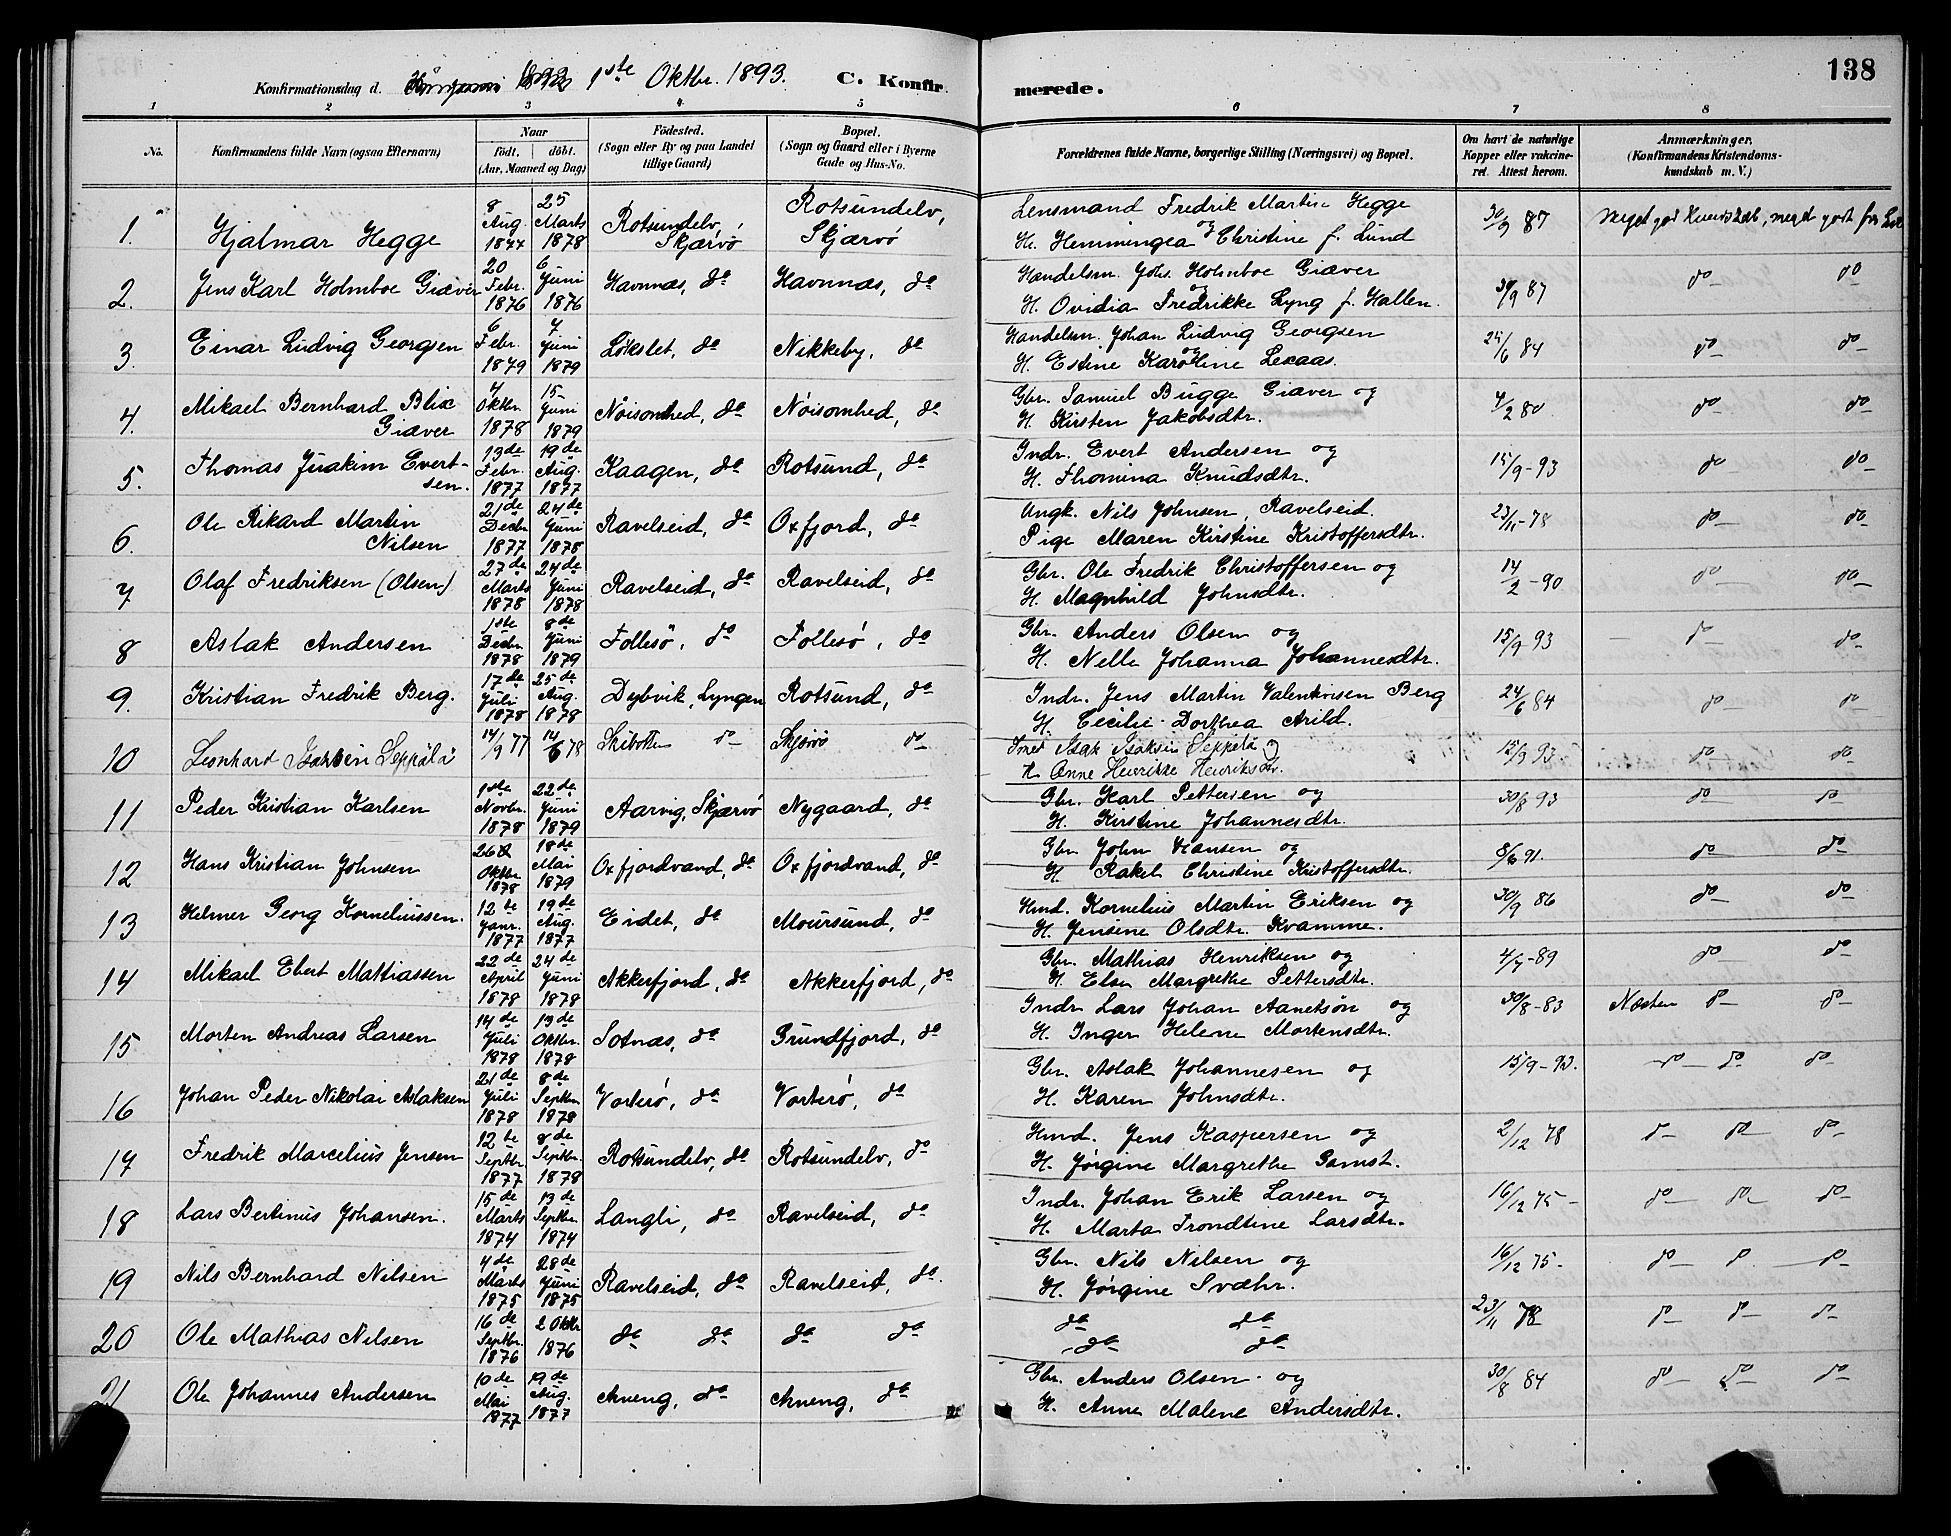 138
Konfirmationsdag d. 1ste Oktbr. 1893. C. Konfir merede.
1 2 3 4 5 6 7 8
No. Konfirmandens fulde Navn (ogsaa Efternavn)
Naar født. døbt. (Aar, Maaned og Dag)
Fødested. (Sogn eller By og paa Landet tillige Gaard)
Bopæl. (Sogn og Gaard eller i Byerne Gade og Hus-No.
Forældrenes fulde Navne, borgerlige Stilling (Næringsvei) og Bopæl.
Om havt de naturlige Kopper eller vakcineret. Attest herom.
Anmærkninger. (Konfirmandens Kristendomskundskab m. V.)
1. Hjalmar Hegge 8 Aug. 1877 25 Marts 1878 Rotsundelv, Skjærvö Rotsundelv, Skjærvö Lensmand Fredrik Martin Hegge
og H. Hemmingea Christine f. Lund 30/9 87 Meget god Kundskab, meget godt for
2. Jens Karl Holmboe Giæver 20 Febr. 1876 6 Juni 1876 Havnnæs, do Havnnæs, do Handelsm. Johs. Holmboe Giæver
og H. Ovidia Fredrikke Lyng f. Hallen. 30/9 87 do do
3. Einar Ludvig Georgsen 6 Febr. 1879 7 Juni 1879 Løkslet, do Nikkeby, do Handelsm. Johan Ludvig Georgsen
og H. Estine Karoline Lexaas. 25/6 84 do do
4. Mikael Bernhard Blix Giæver 7 Oktbr. 1878 15 Juni 1879 Nöisomhed, do Nöisomhed, do Gbr. Samuel Bugge Giæver og
H. Kirsten Jakobsdtr. 7/2 80. do do
5. Thomas Juakim Evertsen. 13de Febr. 1877 19de Aug. 1877 Kaagen, do Rotsund, do Indr. Evert Andersen og
H. Thomina Knudsdtr. 15/9-93 do do
6. Ole Rikard Martin Nilsen 21de Decbr 1877 24de Juni 1878 Ravelseid, do Oxfjord, do Ungk. Nils Johnsen, Ravelseid.
Pige Maren Kirstine Kristoffersdtr. 23/11-78 do do
7 Olaf Fredriksen (Olsen) 27de Marts 1878 24de Juni 1878 Ravelseid, do Ravelseid, do Gbr. Ole Fredrik Christoffersen og
H. Magnhild Johnsdtr. 14/2-90 do do
8 Aslak Andersen 1ste Decbr. 1878 8de Juni 1879 Follesö, do Follesö, do Gbr. Anders Olsen og
H. Nella Johanna Johannesdtr. 15/9 93 do do
9. Kristian Fredrik Berg. 17de Juli 1878 25de Aug. 1878 Dybvik, Lyngen Rotsund, do Indr. Jens Martin Valentinsen Berg
H. Cecilie Dorthea Arild. 24/6 84 do do
10 Leonhard Isaksen Seppälä 14/9 77 14/6 78 Skibotten do Skjærvö do Smed Isak Isaksen Seppälä og
H. Anne Henrikke Henriksdtr. 15/9 93 do do
11 Peder Kristian Karlsen 1ste Novbr. 1878 22de Juni 1879 Aarvig, Skjærvö Nygaard, do Gbr. Karl Pettersen og
H. Kirstine Johannesdtr. 30/8 93 do do
12 Hans Kristian Johnsen 26de Oktbr. 1878 18de Mai 1879 Oxfjordvand, do Oxfjordvand, do Gbr John Hansen og
H. Rakel Christine Kristoffersdtr. 8/6 91. do do
13 Helmer Georg Korneliussen. 12te Janr. 1877 19de Aug. 1877 Eidet, do Moursund, do Hmd. Kornelius Martin Eriksen og
H. Jensine Olsdtr. Kvamme. 30/9 86 do do
14 Mikael Ebert Mattiassen 22de April 1878 24de Juni 1878 Akkerfjord, do Akkerfjord, do Gbr. Mathias Henriksen og
H. Elen Margrethe Pettersdtr. 4/7-89 do do
15 Morten Andreas Larsen 14de Juli 1878 13de Oktbr. 1878 Sotnæs, do Grundfjord, do Indr Lars Johan Aanetsön og
H. Inger Helene Mortensdtr. 30/8-83 Næsten do do
16 Johan Peder Nikolai Aslaksen 21de Juli 1878 8de Septbr 1878 Vorterö, do Vorterö, do Gbr. Aslak Johannesen og
H. Karen Johnsdtr. 15/9-93. do do do
17 Fredrik Marcelius Jensen 12te Septbr 1877 8de Septbr. 1878 Rotsundelv, do Rotsundelv, do Hmd. Jens Kaspersen og
H. Jörgine Margrethe Gamst. 2/12 78 do do do
18 Lars Bertinus Johansen. 15de Marts 1874 13de Septbr. 1874 Langli, do Ravelseid, do Indr. Johan Erik Larsen og
H. Marta Trondtine Larsdtr. 16/12 75- do do do
19 Nils Bernhard Nilsen 4de Marts 1875 28de Juni 1875 Ravelseid, do Ravelseid, do. Gbr. Nils Nilsen og
H. Jörgine Svæhr. 16/12 75- do do do
20 Ole Mathias Nilsen 16de Septbr. 1876 2 Oktbr 1876 do do do do do do
do do 23/11 78 do do do
21 Ole Johannes Andersen 10de Mai 1877 19de Aug. 1877 Arneng, do Arneng, do Gbr. Anders Olsen og
H. Anne Malene Andersdtr. 30/8 84 do do do